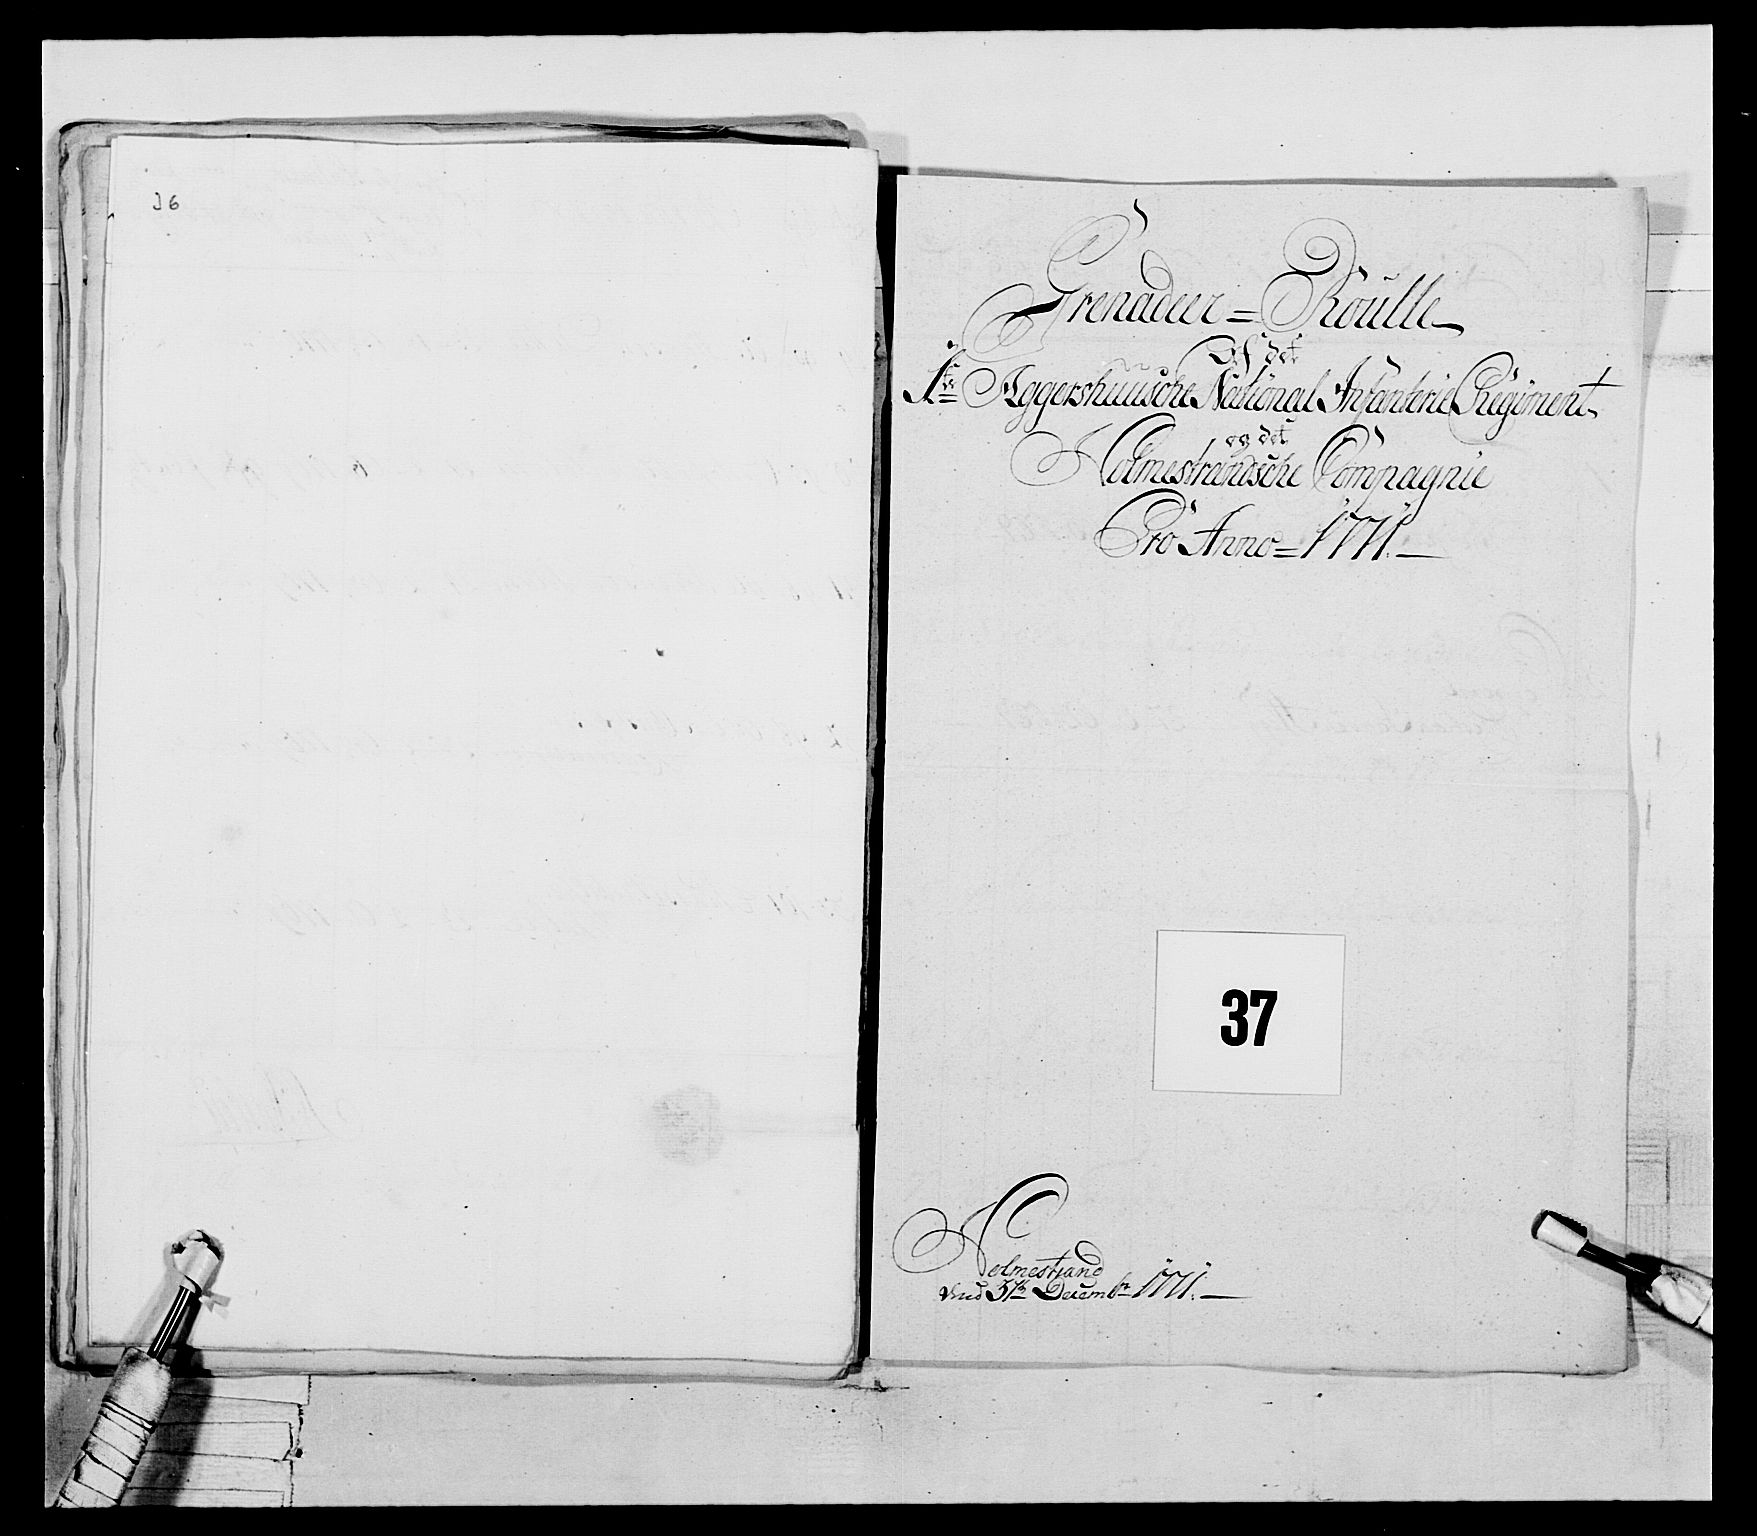 36
Grenadeer = Roulle
Af det
1ste Aggershuusche National Infanterie Regiment
og det
Holmestrandsche Compagnie
Pro Anno = 1771.
37
Holmestrand
31te Decembr 1771.